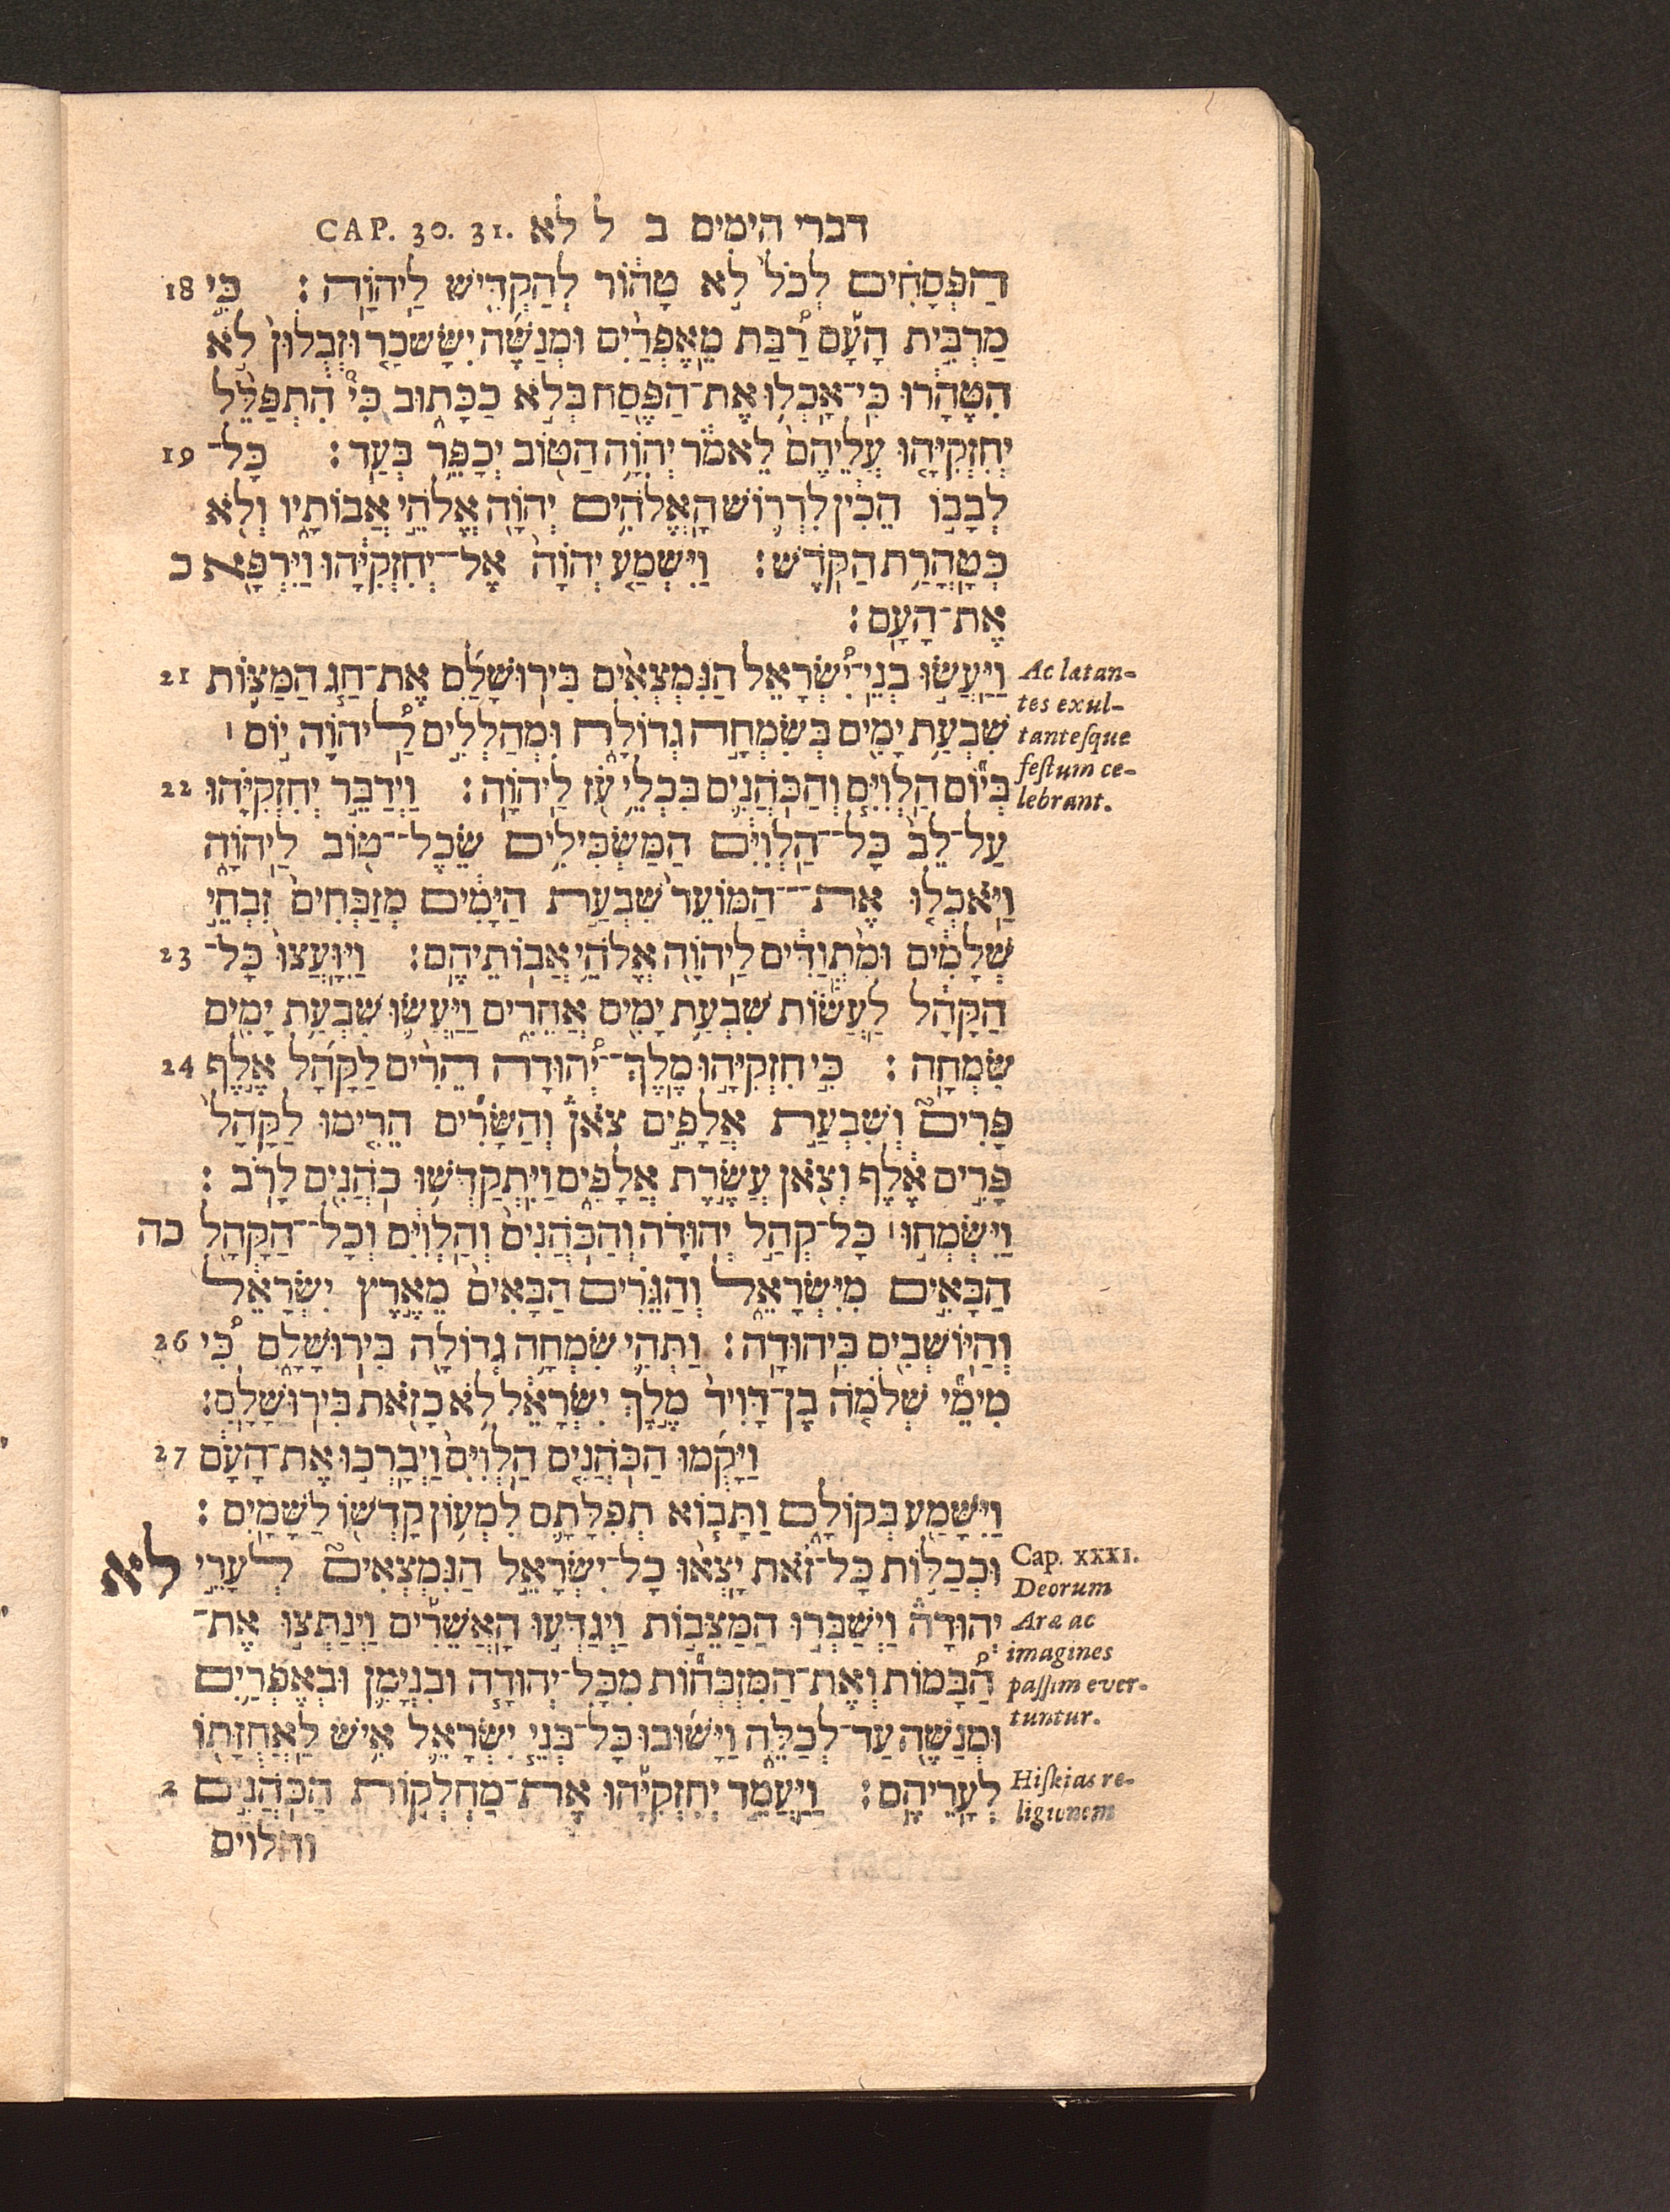 דברי הימים ב ל לא CAP. 30. 31.
הַפְּסָחִ֗ים לְכֹל֙ לֹ֣א טָה֔וֹר לְהַקְדִּ֖ישׁ לַֽיהוָֹֽה׃ כִּ֣י 18
מַרְבִּ֣ית הָעָ֡ם רַ֠בַּת מֵֽאֶפְרַ֨יִם וּמְנַשֶּׁ֜ה יִשָּׂשכָ֤ר וּזְבֻלוּן֙ לֹ֣א
הִטֶּהָ֔רוּ כִּֽי־אָכְל֥וּ אֶת־הַפֶּ֖סַח בְּלֹ֣א כַכָּת֑וּב כִּי֩ הִתְפַּלֵּ֨ל
יְחִזְקִיָּ֤הוּ עֲלֵיהֶם֙ לֵאמֹ֔ר יְהוָֹ֥ה הַטּ֖וֹב יְכַפֵּ֥ר בְּעַֽד׃ כָּל־ 19
לְבָב֣וֹ הֵכִ֔ין לִדְר֛וֹשׁ הָֽאֱלֹהִ֥ים יְהוָֹ֖ה אֱלֹהֵ֣י אֲבוֹתָ֑יו וְלֹ֖א
כְּטָֽהֳרַ֥ת הַקֹּֽדֶשׁ׃ וַיִּשְׁמַ֤ע יְהוָֹה֙ אֶל־יְחִזְקִיָּ֔הוּ וַיִּרְפָּ֖א כ
אֶת־הָעָֽם׃
וַיַּֽעֲשׂ֣וּ בְנֵֽי־יִ֠שְׂרָאֵל הַנִּמְצְאִ֨ים בִּירֽוּשָׁלִַ֜ם אֶת־חַ֧ג הַמַּצּ֛וֹת 21
שִׁבְעַ֥ת יָמִ֖ים בְּשִׂמְחָ֣ה גְדוֹלָ֑ה וּֽמְהַלְלִ֣ים לַֽ֠יהוָֹה י֣וֹם ׀
בְּי֞וֹם הַֽלְוִיִּ֧ם וְהַכֹּֽהֲנִ֛ים בִּכְלֵי־עֹ֖ז לַֽיהוָֹֽה׃ וַיְדַבֵּ֣ר יְחִזְקִיָּ֗הוּ 22
עַל־לֵב֙ כָּל־הַֽלְוִיִּ֔ם הַמַּשְׂכִּילִ֥ים שֵֽׂכֶל־ט֖וֹב לַֽיהוָֹ֑ה
וַיֹּֽאכְל֤וּ אֶת־הַמּוֹעֵד֙ שִׁבְעַ֣ת הַיָּמִ֔ים מְזַבְּחִים֙ זִבְחֵ֣י
שְׁלָמִ֔ים וּמִ֨תְוַדִּ֔ים לַֽיהוָֹ֖ה אֱלֹהֵ֥י אֲבֽוֹתֵיהֶֽם׃ וַיִּוָּֽעֲצוּ֙ כָּל־ 23
הַקָּהָ֔ל לַֽעֲשׂ֕וֹת שִׁבְעַ֥ת יָמִ֖ים אֲחֵרִ֑ים וַיַּֽעֲשׂ֥וּ שִׁבְעַ֥ת יָמִ֖ים
שִׂמְחָֽה׃ כִּ֣י חִזְקִיָּ֣הוּ מֶֽלֶךְ־יְ֠הוּדָה הֵרִ֨ים לַקָּהָ֜ל אֶ֣לֶף 24
פָּרִים֮ וְשִׁבְעַ֣ת אֲלָפִ֣ים צֹאן֒ וְהַשָּׂרִ֞ים הֵרִ֤ימוּ לַקָּהָל֙
פָּרִ֣ים אֶ֔לֶף וְצֹ֖אן עֲשֶׂ֣רֶת אֲלָפִ֑ים וַיִּֽתְקַדְּשׁ֥וּ כֹֽהֲנִ֖ים לָרֹֽב׃
וַיִּשְׂמְח֣וּ ׀ כָּל־קְהַ֣ל יְהוּדָ֗ה וְהַכֹּֽהֲנִים֙ וְהַֽלְוִיִּ֔ם וְכָל־הַקָּהָ֖ל כה
הַבָּאִ֣ים מִיִּשְׂרָאֵ֑ל וְהַגֵּרִ֗ים הַבָּאִים֙ מֵאֶ֣רֶץ יִשְׂרָאֵ֔ל
וְהַיּֽוֹשְׁבִ֖ים בִּֽיהוּדָֽה׃ וַתְּהִ֥י שִׂמְחָֽה גְדוֹלָ֖ה בִּירֽוּשָׁלִָ֑ם כִּ֠י 26
מִימֵ֞י שְׁלֹמֹ֤ה בֶן־דָּוִיד֙ מֶ֣לֶךְ יִשְׂרָאֵ֔ל לֹ֥א כָזֹ֖את בִּירֽוּשָׁלִָֽם׃
וַיָּקֻ֜מוּ הַכֹּֽהֲנִ֤ים הַֽלְוִיִּם֙ וַיְבָֽרְכ֣וּ אֶת־הָעָ֔ם 27
וַיִּשָּׁמַ֖ע בְּקוֹלָ֑ם וַתָּב֧וֹא תְפִלָּתָ֛ם לִמְע֥וֹן קָדְשׁ֖וֹ לַשָּׁמָֽיִם׃
וּכְכַלּ֣וֹת כָּל־זֹ֗את יָֽצְא֨וּ כָל־יִשְׂרָאֵ֥ל הַֽנִּמְצְאִים֮ לְעָרֵ֣י לא
יְהוּדָה֒ וַיְשַׁבְּר֣וּ הַמַּצֵּב֣וֹת וַיְגַדְּע֣וּ הָֽאֲשֵׁרִ֡ים וַיְנַתְּצ֣וּ אֶת־
הַ֠בָּמוֹת וְאֶת־הַֽמִּזְבְּחֹ֞ת מִכָּל־יְהוּדָ֧ה וּבִנְיָמִ֛ן וּבְאֶפְרַ֥יִם
וּמְנַשֶּׁ֖ה עַד־לְכַלֵּ֑ה וַיָּשׁ֜וּבוּ כָּל־בְּנֵ֧י יִשְׂרָאֵ֛ל אִ֥ישׁ לַֽאֲחֻזָּת֖וֹ
לְעָרֵיהֶֽם׃ וַיַּֽעֲמֵ֣ד יְחִזְקִיָּ֡הוּ אֶת־מַחְלְק֣וֹת הַכֹּֽהֲנִ֣ים 2
והלוים
Ac lætan-
tes exul-
tantesque
festum ce-
lebrant.
Cap. XXXI.
Deorum
Aræ ac
imagines
passim ever-
tuntur.
Hiskias re-
ligionem